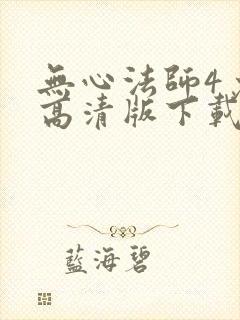 無心法師4
高清版下載
藍海碧